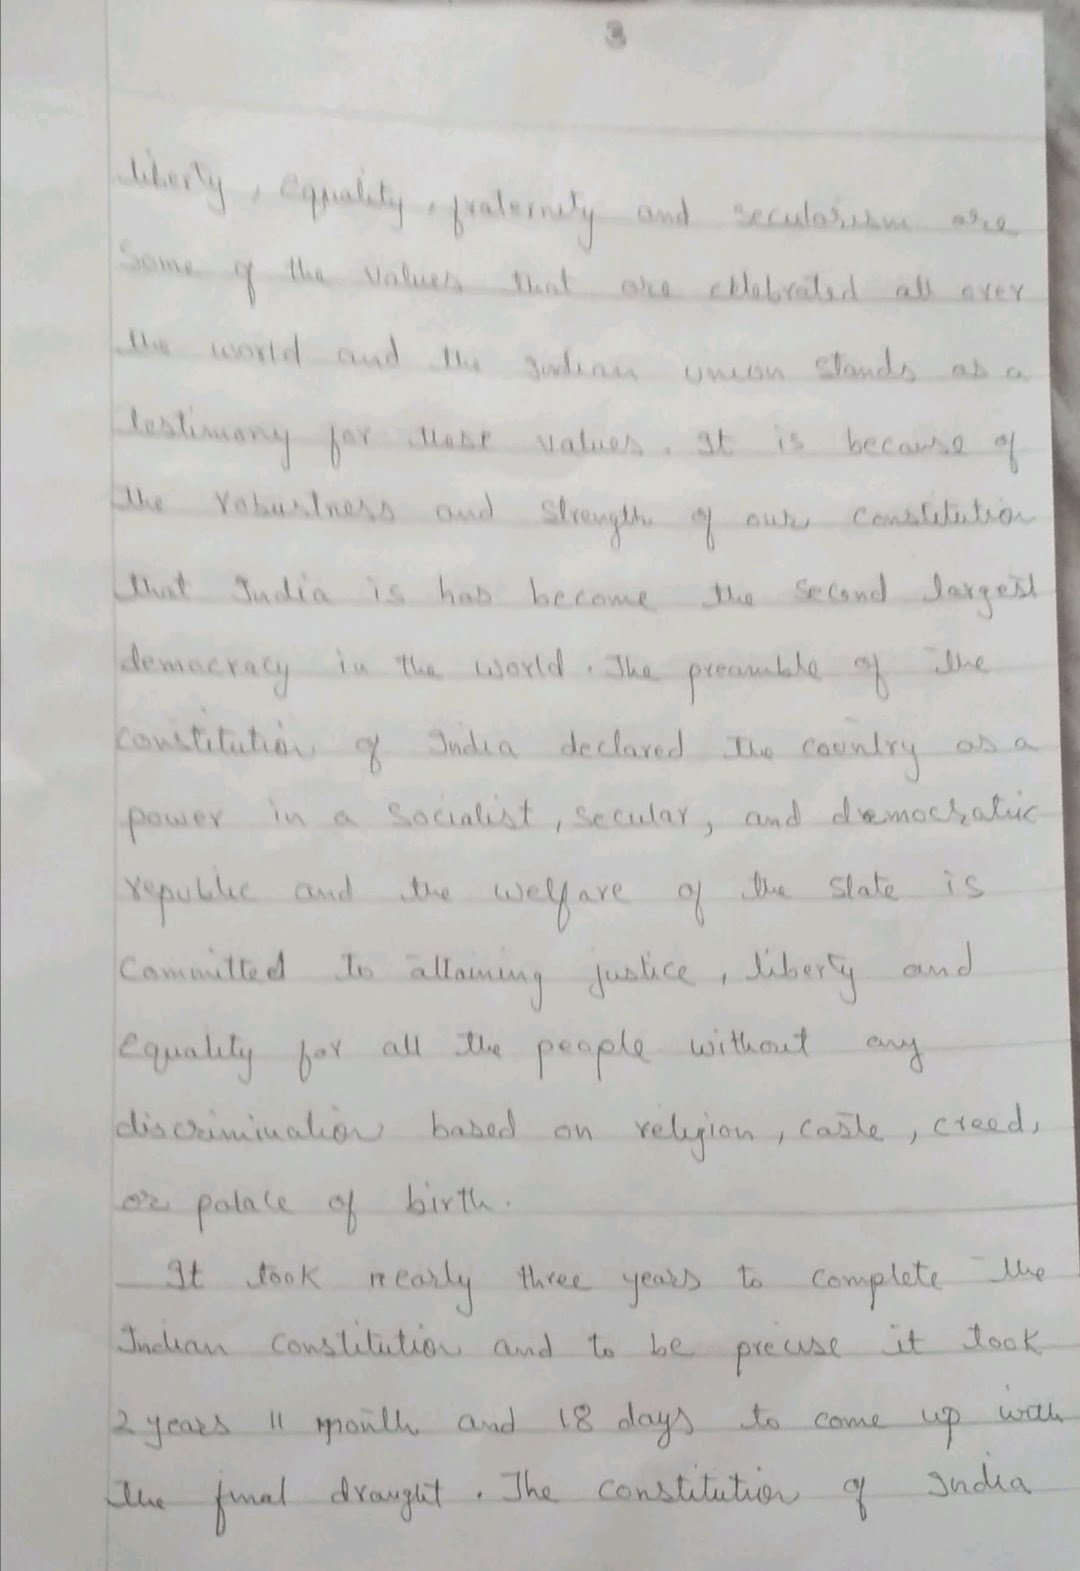 3
liberty, equality, fraternity and secularism are
Some of the values that are celebrated all over
the world and the Indian union stands as a
testimony for these values. It is because of
the robustness and strength of our constitution
that India is has become the second largest
democracy in the world. The preamble of the
constitution of India declared the country as a
power in a socialist, secular, and democratic
republic and the welfare of the state is
committed to attaining justice, liberty and
equality for all the people without any
discrimination based on religion, caste, creed,
or palace of birth.
It took nearly three years to complete the
Indian constitution and to be precise it took
2 years 11 month and 18 days to come up with
the final draught. The constitution of India